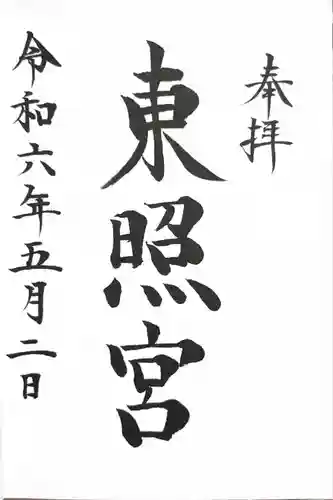 奉拝
東照宮
令和六年五月二日